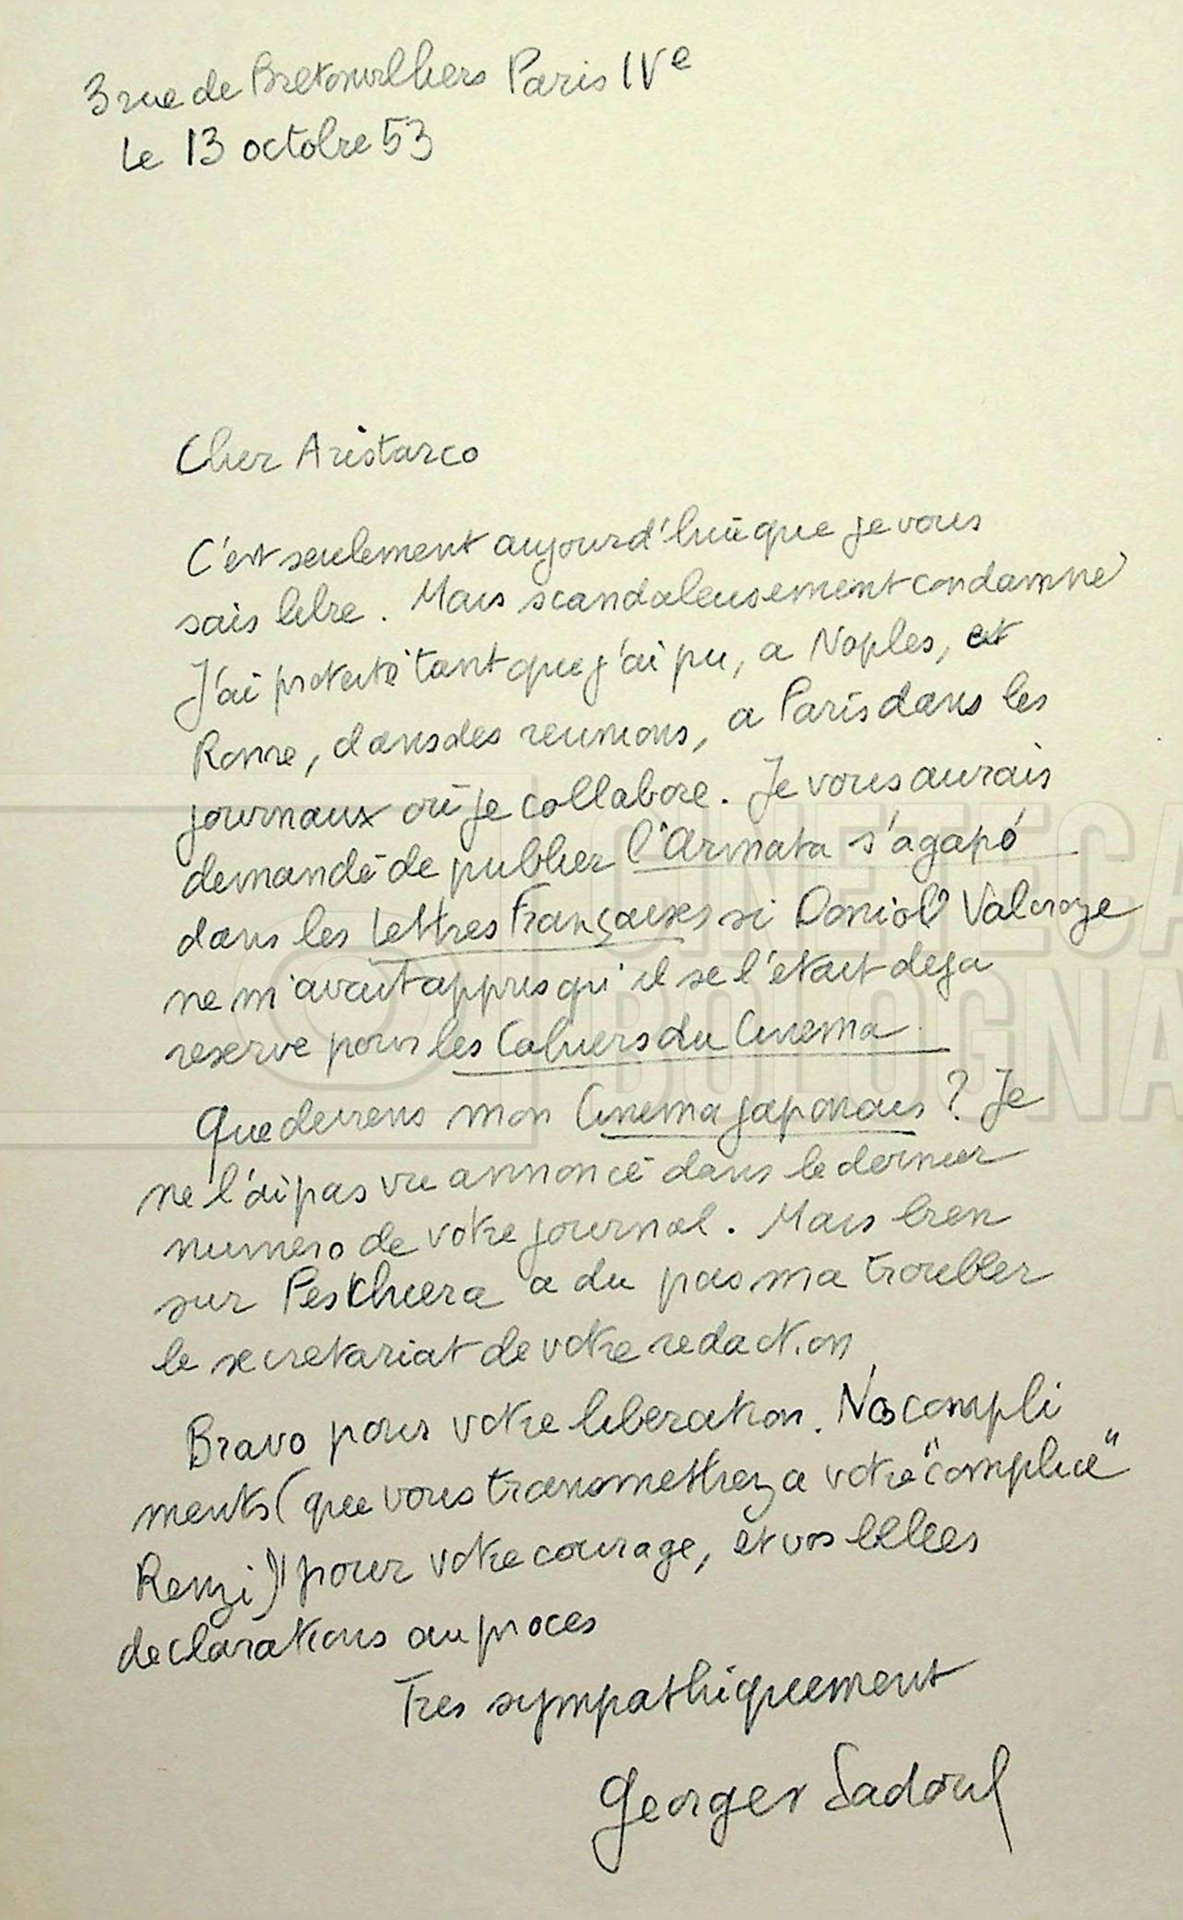 3 rue de Bretonvilliers Paris IVe
Le 13 octobre 53
Cher Aristarco
C'est seulement aujourd'hui que je vous
sais libre. Mais scandaleusement condamné
J'ai protesté tant que j'ai pu, a Naples, et
Rome, dans des reunions, a Paris dans les
journaux où je collabore. Je vous aurais
demandé de publier l'Armata s'agapó
dans les Lettres Françaises si Doniol Valcroze
ne m'avait appris qu'il se l'etait deja
reserve pour les Cahiers du Cinema
Que deviens mon Cinema japonais ? Je
ne l'ai pas vu annoncé dans le dernier
numero de votre journal. Mais bien
sur Peskhiera a du pas ma troubler
le secretariat de votre redaction
Bravo pour votre liberation. Nos compli
ments (que vous transmettrez a votre "complice"
Renzi) pour votre courage, et vos belles
declarations au proces
Tres sympathiquement
Georges Sadoul
CINETECA
BOLOGNA